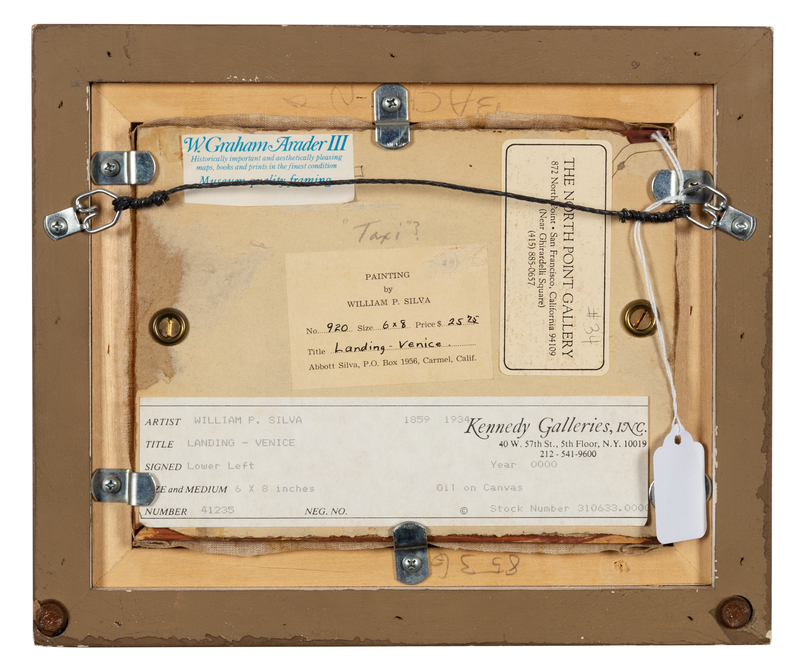 BACK-N
W. Graham Arader III
Historically important and aesthetically pleasing
maps, books and prints in the finest condition
Museum quality framing
"Taxi"?
THE NORTH POINT GALLERY
872 North Point • San Francisco, California 94109
(Near Ghirardelli Square)
(415) 885-0657
#34
PAINTING
by
WILLIAM P. SILVA
No. 920 Size 6 x 8 Price $ 25 75
Title Landing - Venice.
Abbott Silva, P.O. Box 1956, Carmel, Calif.
ARTIST WILLIAM P. SILVA 1859 1934
Kennedy Galleries, INC.
TITLE LANDING - VENICE
40 W. 57th St., 5th Floor, N.Y. 10019
212 - 541-9600
SIGNED Lower Left Year 0000
ZE and MEDIUM 6 X 8 inches Oil on Canvas
NUMBER 41235 NEG. NO. © Stock Number 310633.000
8536